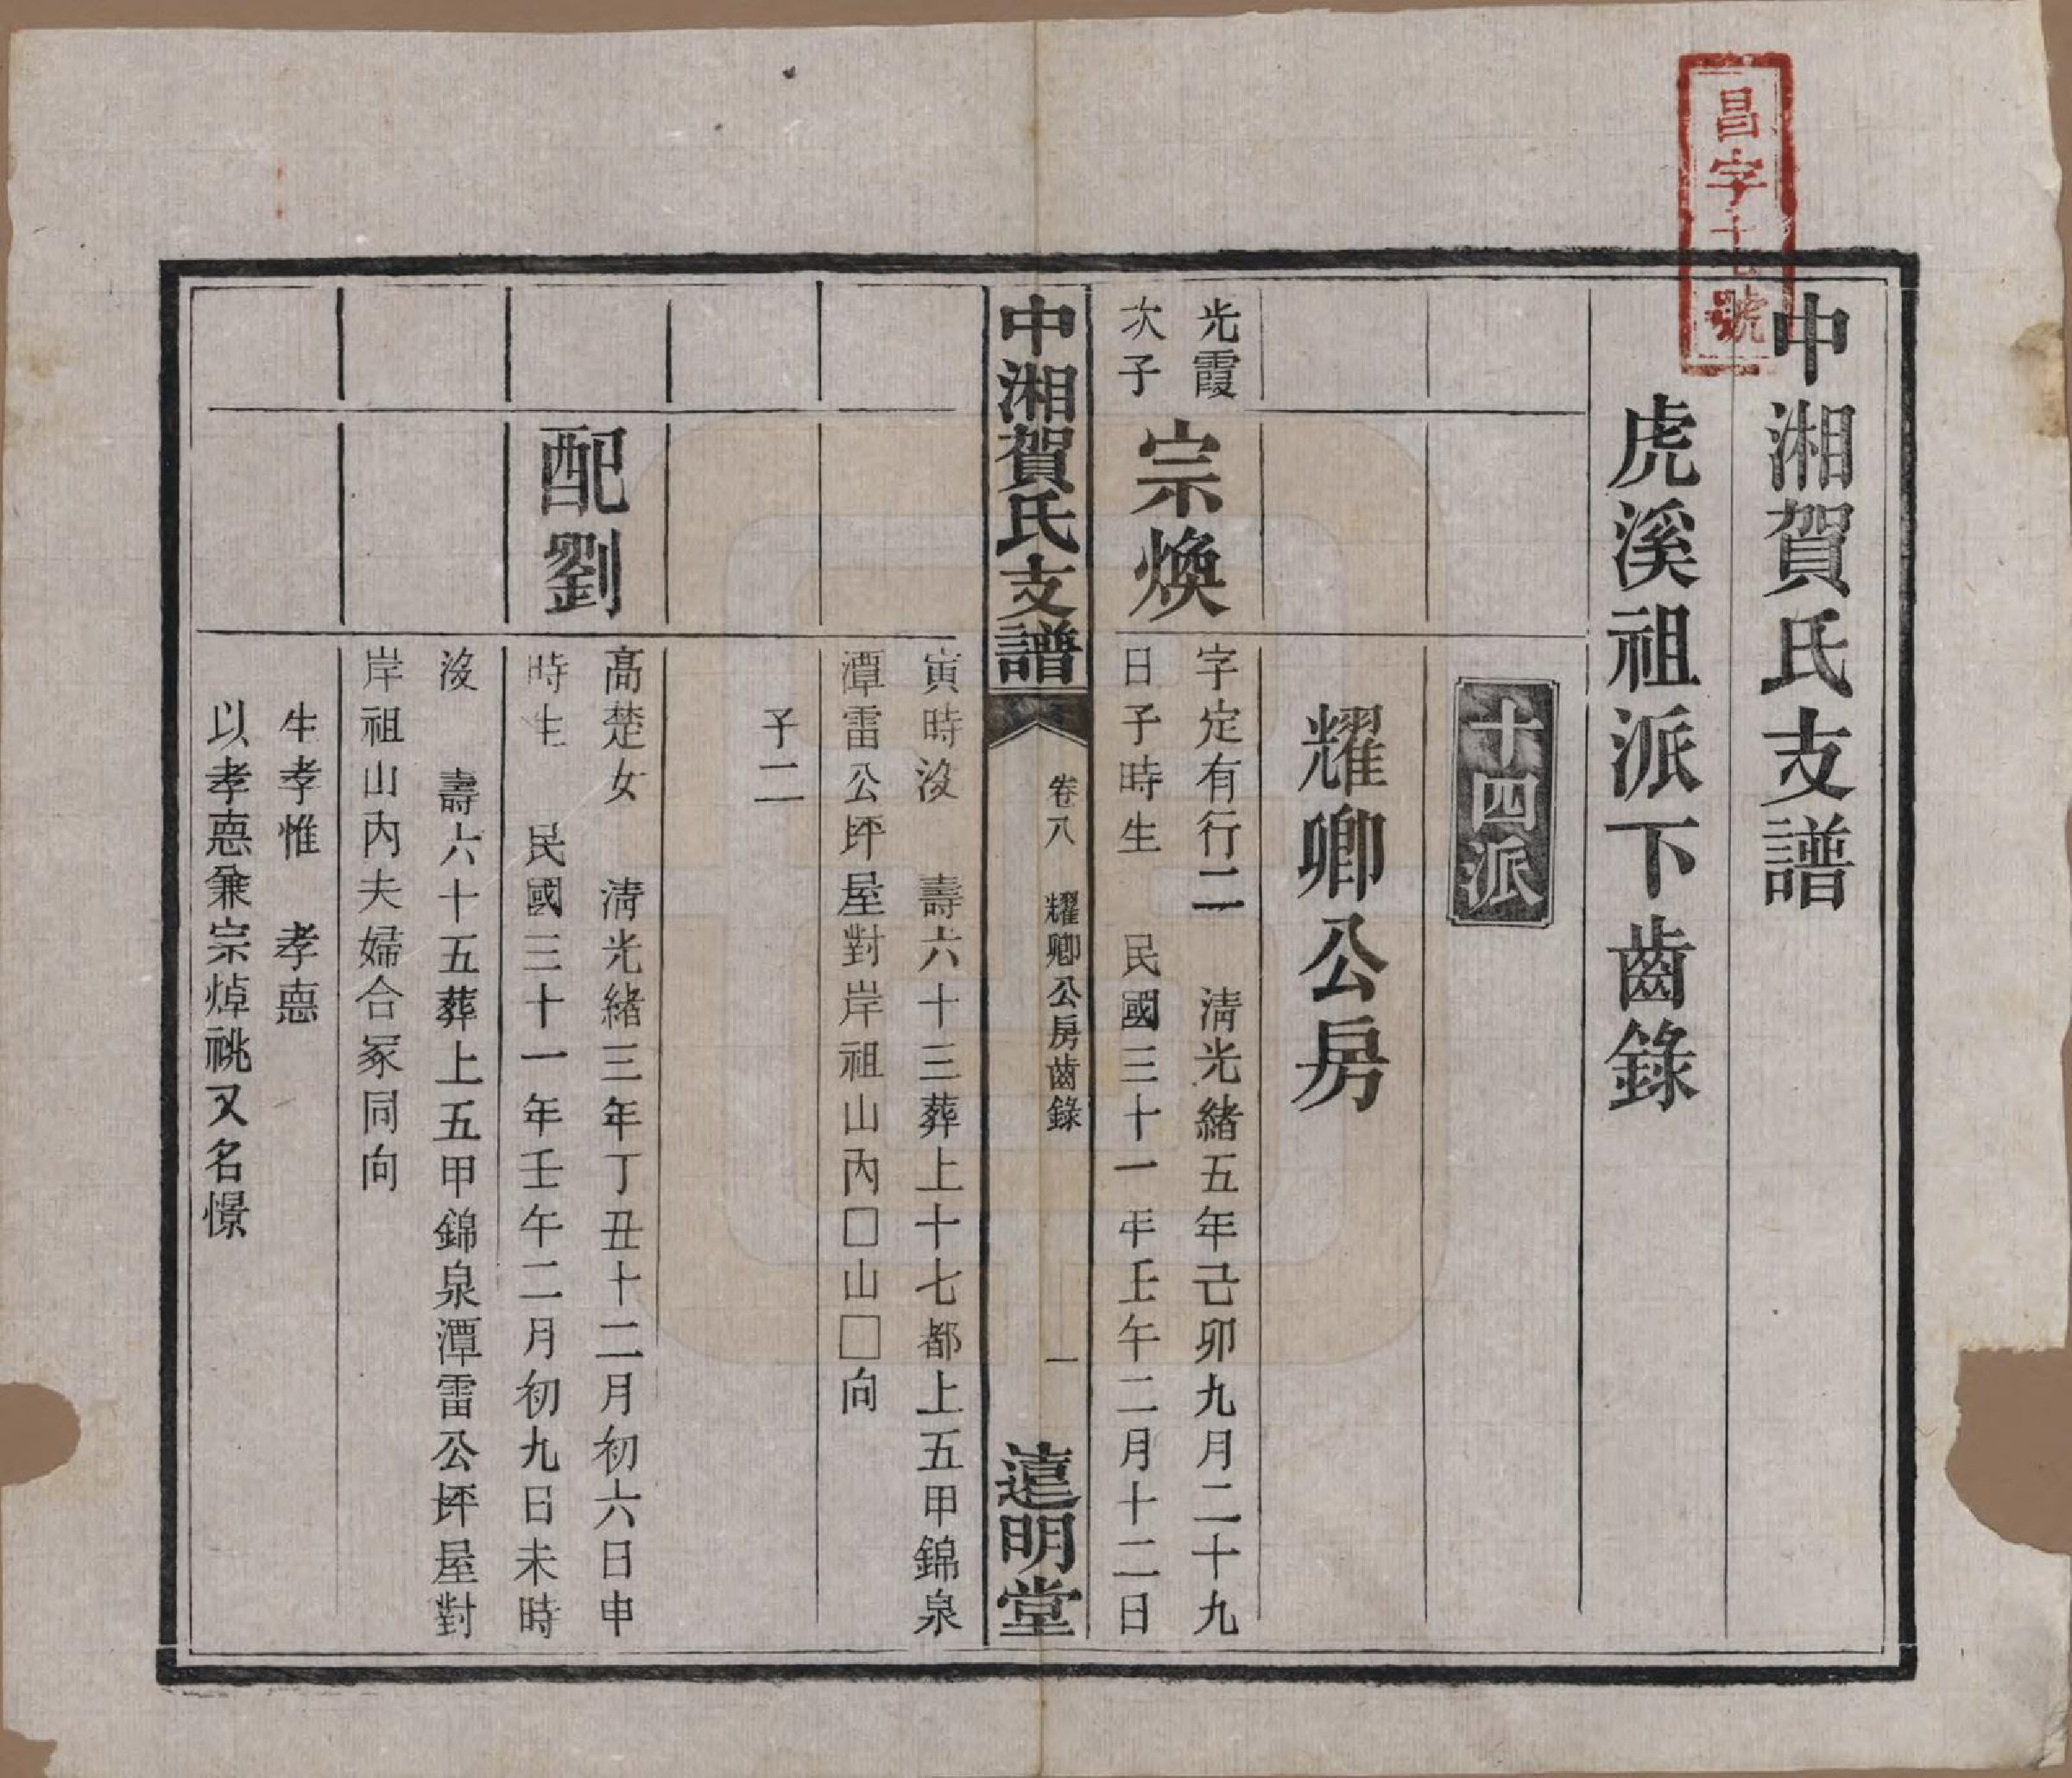 昌字十七號
中湘賀氏支譜
虎溪祖派下齒錄
十四派
耀卿公房
光霞
次子
宗煥
字定有行二　清光緒五年己卯九月二十九
日子時生　民國三十一年壬午二月十二日
中湘賀氏支譜
卷八　耀卿公房齒錄
一
遠明堂
寅時沒　壽六十三葬上十七都上五甲錦泉
潭雷公坪屋對岸祖山內□山□向
子二
配劉
高楚女　清光緒三年丁丑十二月初六日申
時生　民國三十一年壬午二月初九日未時
沒　壽六十五葬上五甲錦泉潭雷公坪屋對
岸祖山內夫婦合冢同向
生孝惟　孝悳
以孝悳兼宗焯祧又名憬